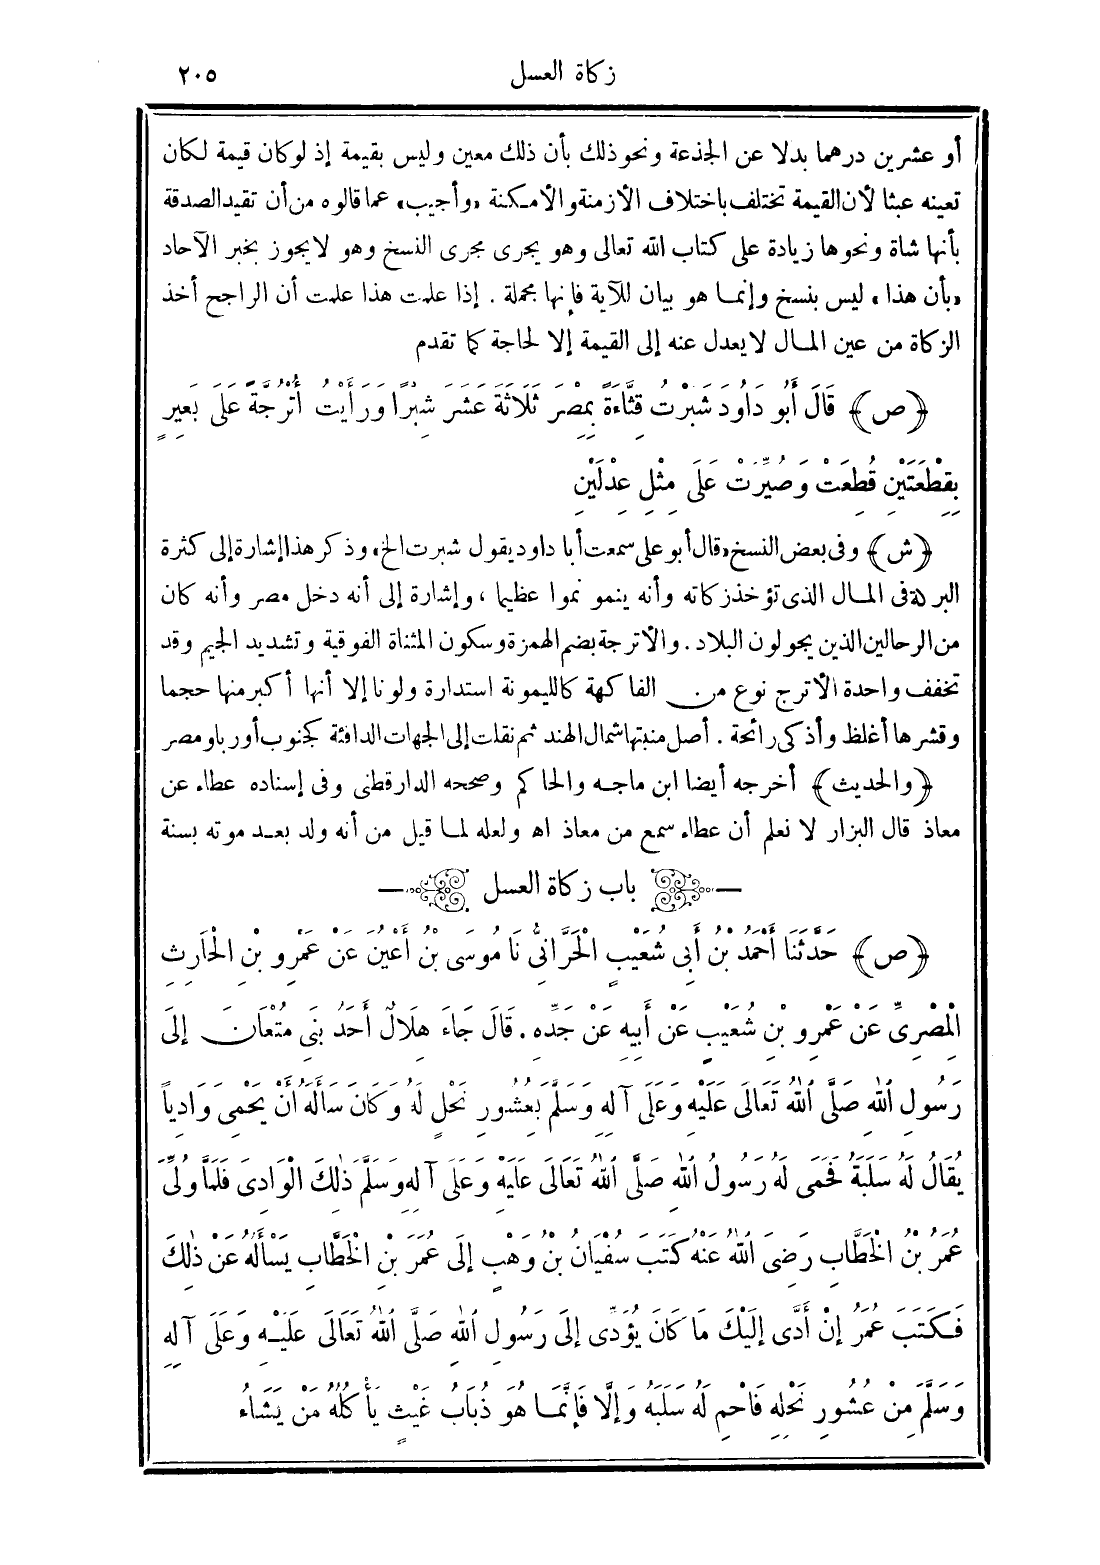 زكاة العسل ٢٠٥
أو عشرين درهما بدلا عن الجذعة ونحو ذلك بأن ذلك معين وليس بقيمة إذ لو كان قيمة لكان
تعينه عبثا لأن القيمة تختلف باختلاف الأزمنة والأمكنة «وأجيب» عما قالوه من أن تقيد الصدقة
بأنها شاة ونحوها زيادة على كتاب الله تعالى وهو يجرى مجرى النسخ وهو لا يجوز بخبر الآحاد
«بأن هذا» ليس بنسخ وإنما هو بيان للآية فإنها مجملة . إذا علمت هذا علمت أن الراجح أخذ
الزكاة من عين المال لا يعدل عنه إلى القيمة إلا لحاجة كما تقدم
﴿ص﴾ قَالَ أَبُو دَاوُدَ شَبَرْتُ قِثَّاءَةً بِمِصْرَ ثَلَاثَةَ عَشَرَ شِبْرًا وَرَأَيْتُ أُتْرُجَّةً عَلَى بَعِيرٍ
بِقِطْعَتَيْنِ قُطِعَتْ وَصُيِّرَتْ عَلَى مِثْلِ عِدْلَيْنِ
﴿ش﴾ وفى بعض النسخ «قال أبو على سمعت أبا داود يقول شبرت الخ» وذكر هذا إشارة إلى كثرة
البركة فى المال الذى تؤخذ زكاته وأنه ينمو نموا عظيما ، وإشارة إلى أنه دخل مصر وأنه كان
من الرحالين الذين يجولون البلاد . والأترجة بضم الهمزة وسكون المثناة الفوقية وتشديد الجيم وقد
تخفف واحدة الأترج نوع من الفاكهة كالليمونة استدارة ولونا إلا أنها أكبر منها حجما
وقشرها أغلظ وأذكى رائحة . أصل منبتها شمال الهند ثم نقلت إلى الجهات الدافئة كجنوب أوربا ومصر
﴿والحديث﴾ أخرجه أيضا ابن ماجه والحاكم وصححه الدارقطنى وفى إسناده عطاء عن
معاذ قال البزار لا نعلم أن عطاء سمع من معاذ اه ولعله لما قيل من أنه ولد بعد موته بسنة
باب زكاة العسل
﴿ص﴾ حَدَّثَنَا أَحْمَدُ بْنُ أَبِى شُعَيْبٍ الْحَرَّانِىُّ نَا مُوسَى بْنُ أَعْيَنَ عَنْ عَمْرِو بْنِ الْحَارِثِ
الْمِصْرِىِّ عَنْ عَمْرِو بْنِ شُعَيْبٍ عَنْ أَبِيهِ عَنْ جَدِّهِ . قَالَ جَاءَ هِلَالٌ أَحَدُ بَنِى مُتْعَانَ إِلَى
رَسُولِ اللهِ صَلَّى اللهُ تَعَالَى عَلَيْهِ وَعَلَى آلِهِ وَسَلَّمَ بِعُشُورِ نَحْلٍ لَهُ وَكَانَ سَأَلَهُ أَنْ يَحْمِىَ وَادِياً
يُقَالُ لَهُ سَلَبَةُ فَحَمَى لَهُ رَسُولُ اللهِ صَلَّى اللهُ تَعَالَى عَلَيْهِ وَعَلَى آلِهِ وَسَلَّمَ ذٰلِكَ الْوَادِىَ فَلَمَّا وُلِّىَ
عُمَرُ بْنُ الْخَطَّابِ رَضِىَ اللهُ عَنْهُ كَتَبَ سُفْيَانُ بْنُ وَهْبٍ إِلَى عُمَرَ بْنِ الْخَطَّابِ يَسْأَلُهُ عَنْ ذٰلِكَ
فَكَتَبَ عُمَرُ إِنْ أَدَّى إِلَيْكَ مَا كَانَ يُؤَدِّى إِلَى رَسُولِ اللهِ صَلَّى اللهُ تَعَالَى عَلَيْهِ وَعَلَى آلِهِ
وَسَلَّمَ مِنْ عُشُورِ نَحْلِهِ فَاحْمِ لَهُ سَلَبَةَ وَإِلَّا فَإِنَّمَا هُوَ ذُبَابُ غَيْثٍ يَأْكُلُهُ مَنْ يَشَاءُ